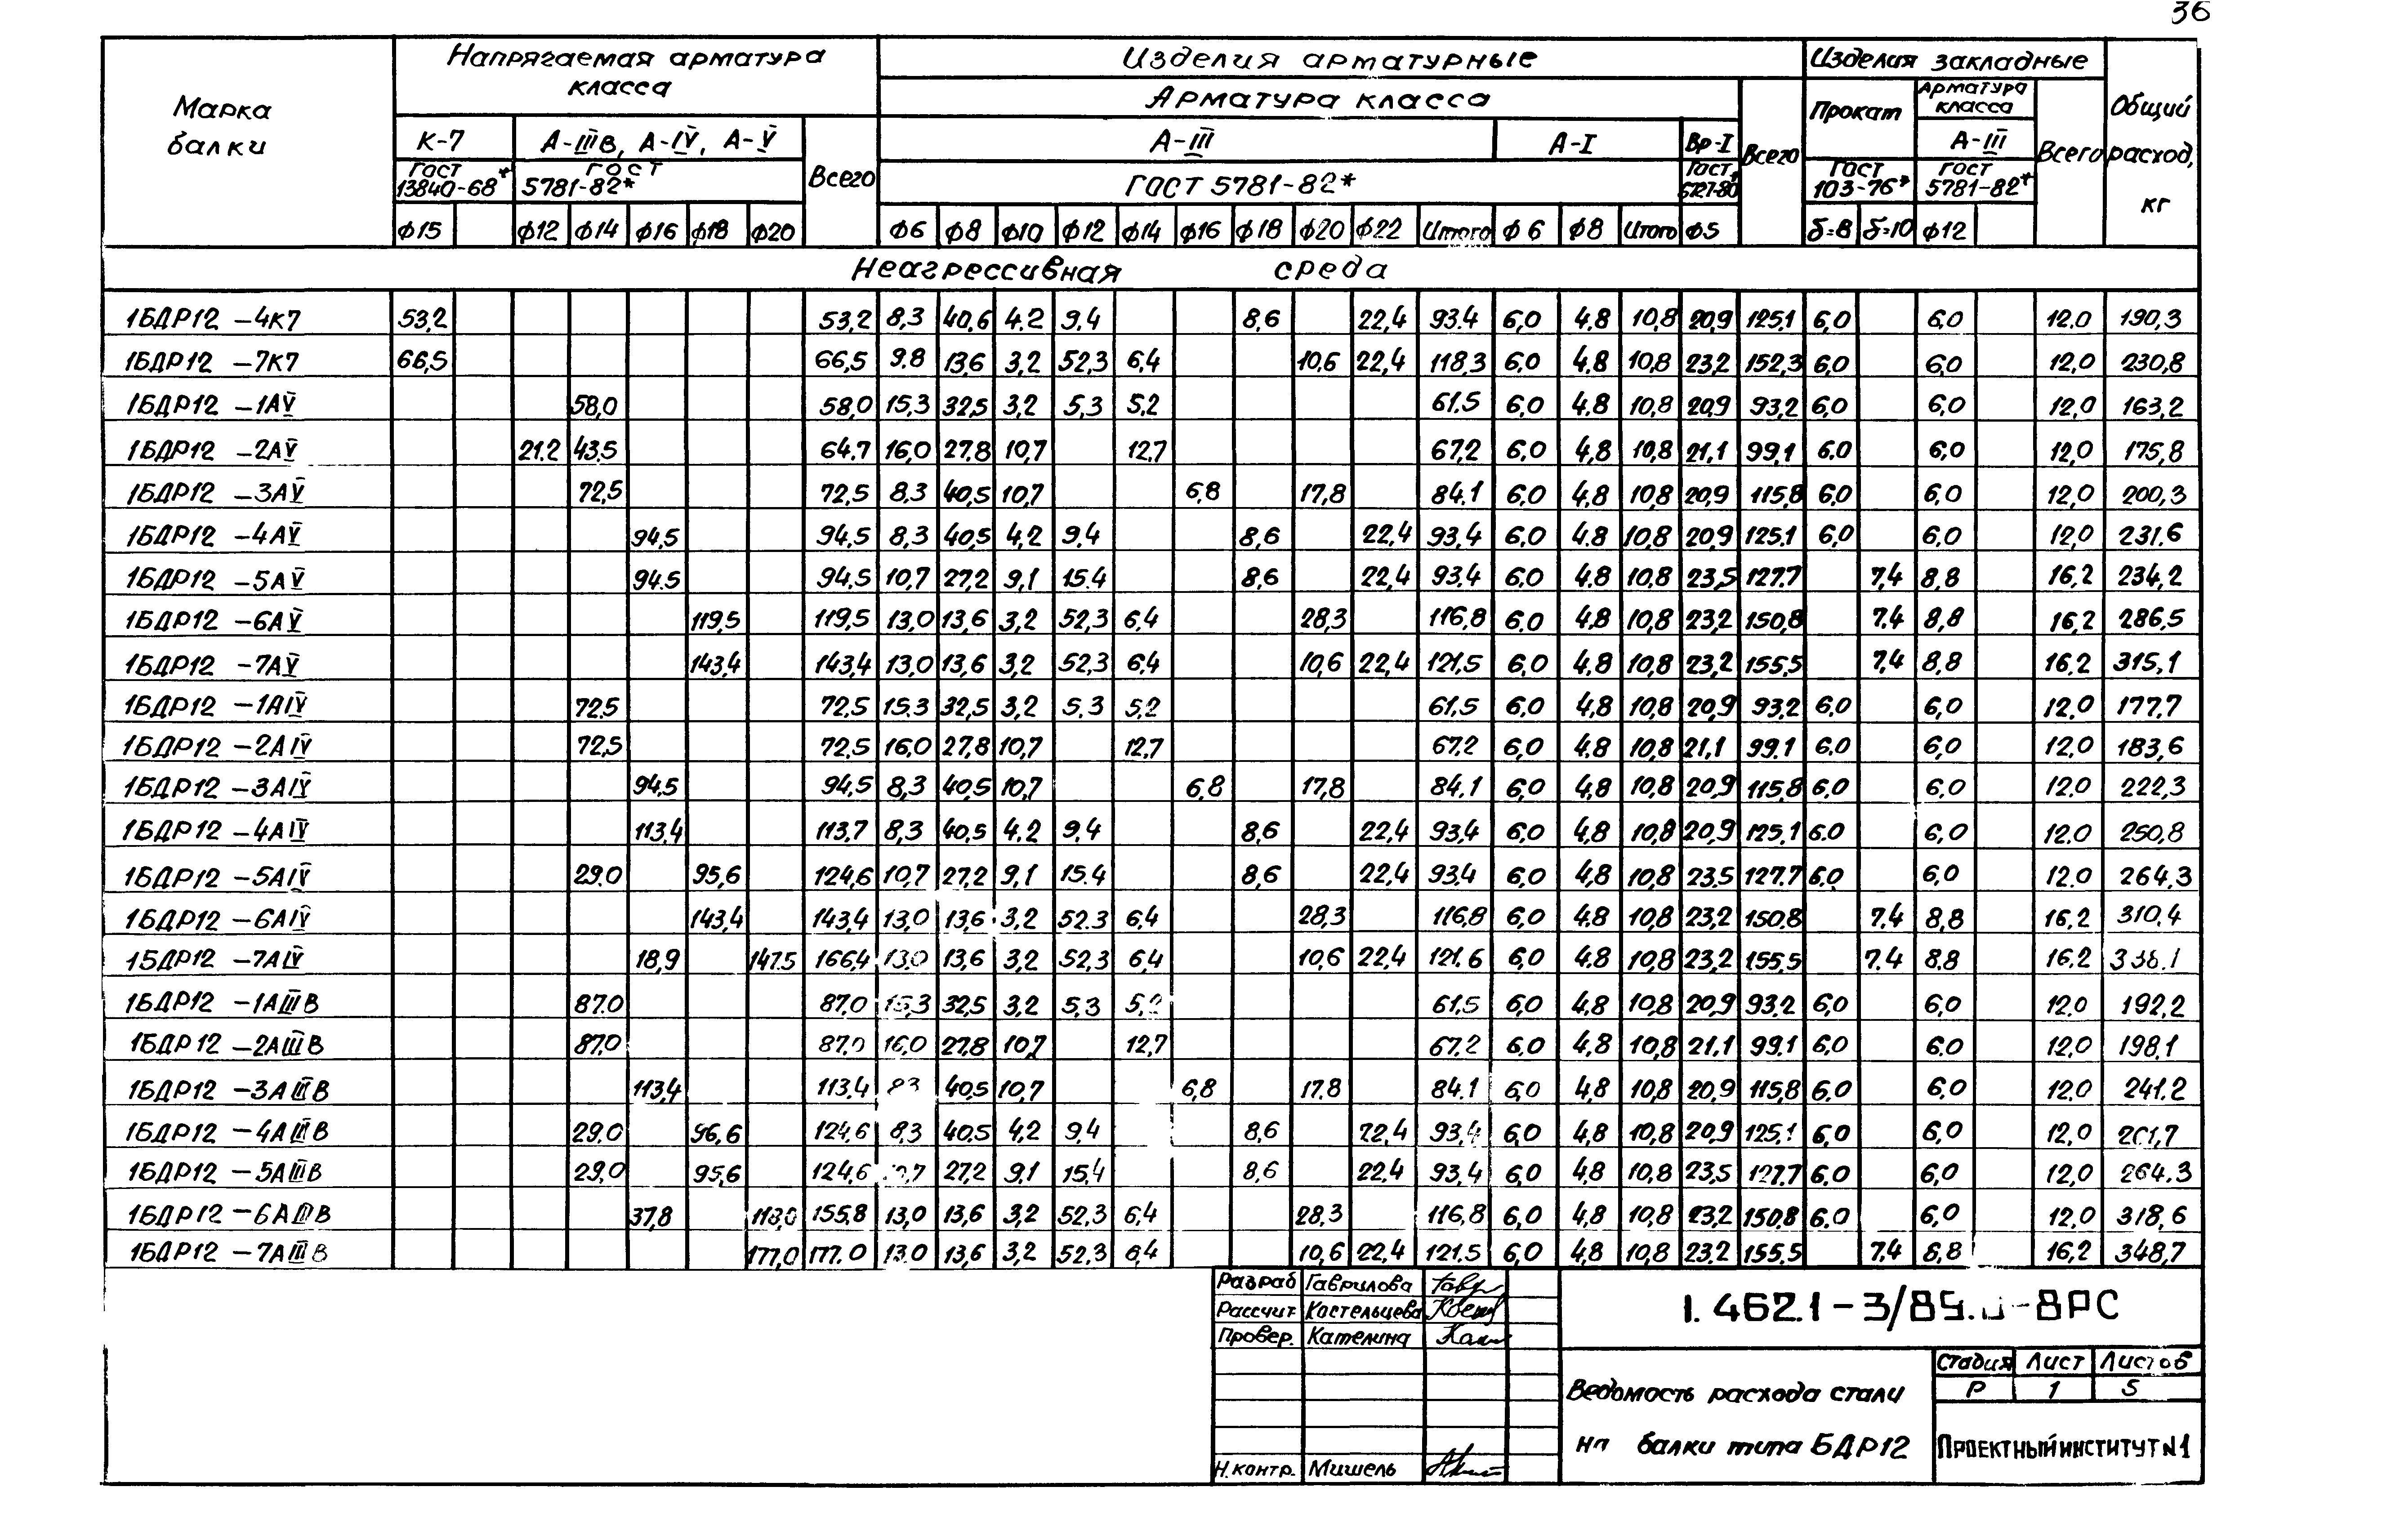 36
Марка балки
Напрягаемая арматура класса
Изделия арматурные
Изделия закладные
Общий расход, кг
Арматура класса
Прокат
Арматура класса
К-7
А-IIIв, А-IV, А-V
Всего
А-III
А-I
Вр-I
Всего
А-III
Всего
ГОСТ 13840-68*
ГОСТ 5781-82*
ГОСТ 5781-82*
ГОСТ 5727-80
ГОСТ 103-76*
ГОСТ 5781-82*
ф15 ф12 ф14 ф16 ф18 ф20 ф6 ф8 ф10 ф12 ф14 ф16 ф18 ф20 ф22 Итого ф6 ф8 Итого ф5 δ=8 δ=10 ф12
Неагрессивная среда
1БДР12 -4К7 53,2 53,2 8,3 40,6 4.2 9.4 8,6 22,4 93.4 6,0 4.8 10,8 20,9 125.1 6,0 6.0 12.0 190,3
1БДР12 -7К7 66,5 66,5 9.8 13,6 3,2 52,3 6,4 10,6 22,4 118.3 6,0 4.8 10,8 23,2 152,3 6,0 6,0 12,0 230,8
1БДР12 -1АV 58,0 58,0 15,3 32,5 3,2 5,3 5,2 61.5 6,0 4.8 10,8 20,9 93,2 6,0 6,0 12,0 163,2
1БДР12 -2АV 21.2 43.5 64.7 16,0 27,8 10,7 12,7 67,2 6,0 4,8 10,8 21,1 99,1 6.0 6,0 12,0 175,8
1БДР12 -3АV 72,5 72,5 8,3 40,5 10,7 6,8 17,8 84.1 6,0 4,8 10,8 20,9 115,8 6,0 6,0 12,0 200,3
1БДР12 -4АV 94,5 94,5 8,3 40,5 4,2 9.4 8,6 22,4 93,4 6,0 4.8 10,8 20,9 125.1 6,0 6,0 12,0 231.6
1БДР12 -5АV 94.5 94,5 10,7 27,2 9,1 15.4 8,6 22,4 93,4 6,0 4.8 10,8 23,5 127.7 7,4 8,8 16,2 234,2
1БДР12 -6АV 119,5 119,5 13,0 13,6 3,2 52,3 6,4 28,3 116,8 6,0 4,8 10,8 23,2 150,8 7.4 8,8 16,2 286,5
1БДР12 -7АV 143,4 143,4 13,0 13,6 3,2 52.3 6,4 10,6 22,4 121,5 6,0 4,8 10,8 23,2 155,5 7,4 8,8 16.2 315,1
1БДР12 -1АIV 72,5 72,5 15.3 32,5 3,2 5.3 5,2 61,5 6,0 4,8 10,8 20,9 93,2 6,0 6,0 12,0 177,7
1БДР12 -2АIV 72,5 72,5 16,0 27,8 10,7 12,7 67,2 6,0 4,8 10,8 21,1 99.1 6.0 6,0 12.0 183,6
1БДР12 -3АIV 94,5 94,5 8,3 40,5 10,7 6,8 17,8 84.1 6,0 4,8 10,8 20,9 115,8 6,0 6,0 12,0 222,3
1БДР12 -4АIV 113,4 113,7 8,3 40,5 4.2 9,4 8,6 22,4 93,4 6,0 4,8 10,8 20,9 125,1 6.0 6,0 12.0 250,8
1БДР12 -5АIV 29.0 95,6 124,6 10,7 27,2 9,1 15.4 8,6 22,4 93,4 6,0 4,8 10,8 23.5 127.7 6,0 6,0 12.0 264,3
1БДР12 -6АIV 143,4 143,4 13,0 13,6 3,2 52.3 6,4 28,3 116,8 6,0 4.8 10,8 23,2 150.8 7.4 8,8 16,2 310,4
1БДР12 -7АIV 18,9 147.5 166,4 13,0 13,6 3,2 52,3 6,4 10,6 22,4 121.6 6,0 4.8 10,8 23,2 155,5 7.4 8.8 16.2 338.1
1БДР12 -1АIIIв 87.0 87,0 15,3 32,5 3,2 5,3 5,2 61,5 6,0 4,8 10,8 20,9 93,2 6,0 6,0 12.0 192,2
1БДР12 -2АIIIв 87,0 87,0 16,0 27,8 10,7 12,7 67.2 6,0 4,8 10,8 21,1 99,1 6,0 6.0 12,0 198.1
1БДР12 -3АIIIв 113,4 113,4 8,3 40,5 10,7 6,8 17.8 84.1 6,0 4,8 10,8 20,9 115,8 6,0 6,0 12,0 241.2
1БДР12 -4АIIIв 29,0 96,6 124,6 8,3 40,5 4,2 9,4 8,6 22.4 93,4 6,0 4,8 10,8 20,9 125,1 6,0 6,0 12,0 261,7
1БДР12 -5АIIIв 29,0 95,6 124,6 27,2 9,1 15,4 8,6 22.4 93,4 6,0 4,8 10,8 23,5 127.7 6,0 6,0 12,0 264.3
1БДР12 -6АIIIв 37,8 118,0 155,8 13,0 13,6 3,2 52,3 6,4 28.3 116,8 6,0 4,8 10,8 23,2 150,8 6.0 6,0 12,0 318,6
1БДР12 -7АIIIв 177,0 177.0 13.0 13,6 3,2 52,3 6,4 10,6 22,4 121,5 6,0 4,8 10,8 23,2 155,5 7,4 8,8 16,2 348,7
Разраб Гаврилова
Рассчит. Костельцева
Провер. Кателина
Н.контр. Мишель
1.462.1-3/89. -8РС
Ведомость расхода стали
на балки типа БДР12
Стадия Лист Листов
Р 1 5
Проектный институт №1